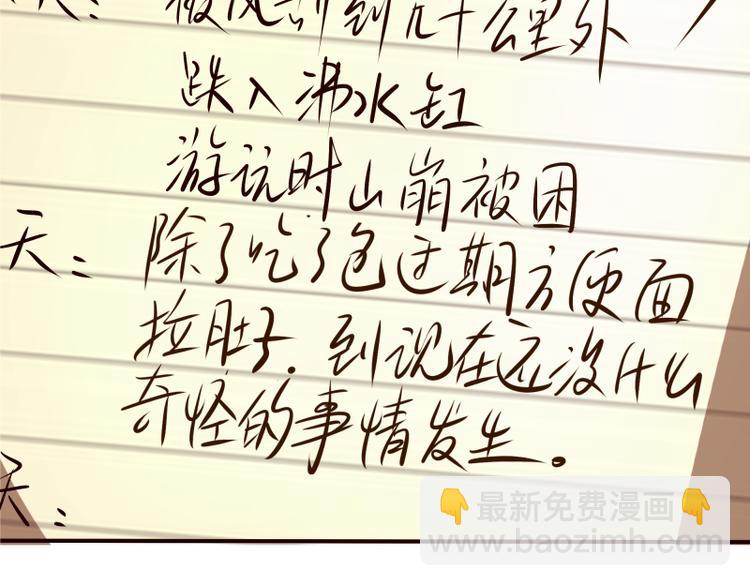 天：被风刮到几十公里外
跌入沸水缸
游玩时山崩被困
天：除了吃了包过期方便面
拉肚子.到现在还没什么
奇怪的事情发生。
天：
👇最新免费漫画👇
www.baozimh.com